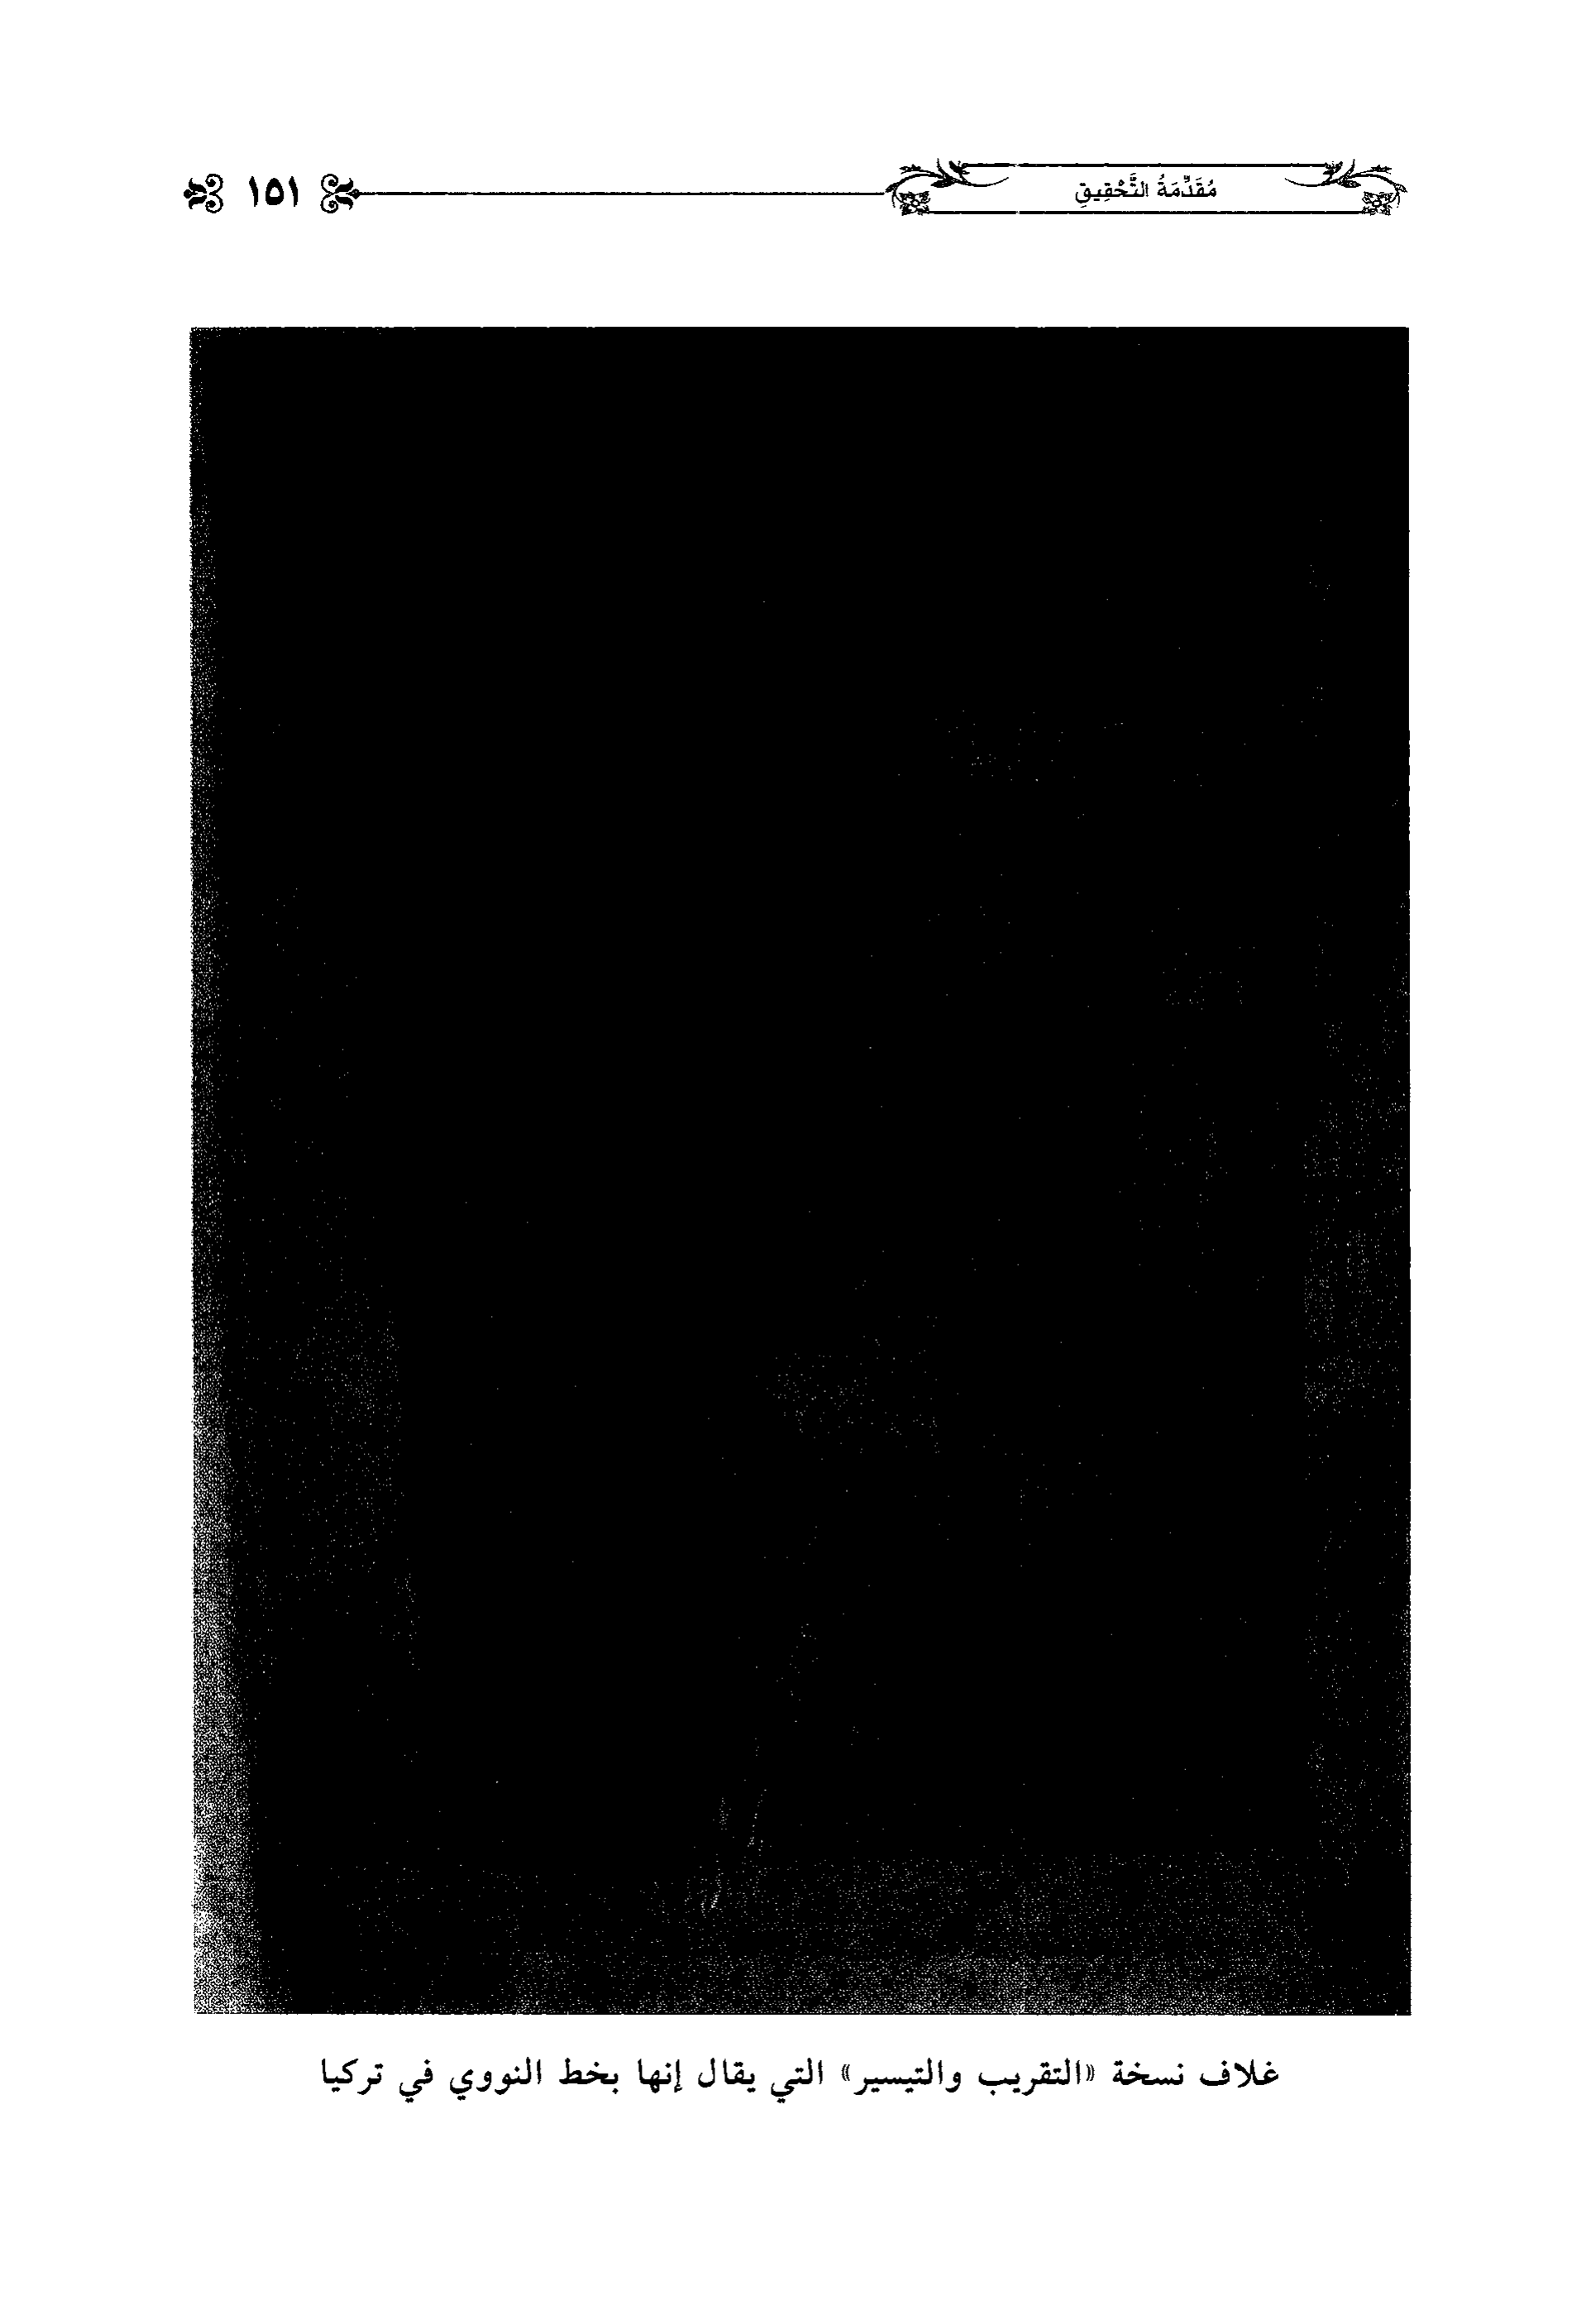 مُقَدِّمَةُ التَّحْقِيقِ
١٥١
غلاف نسخة «التقريب والتيسير» التي يقال إنها بخط النووي في تركيا